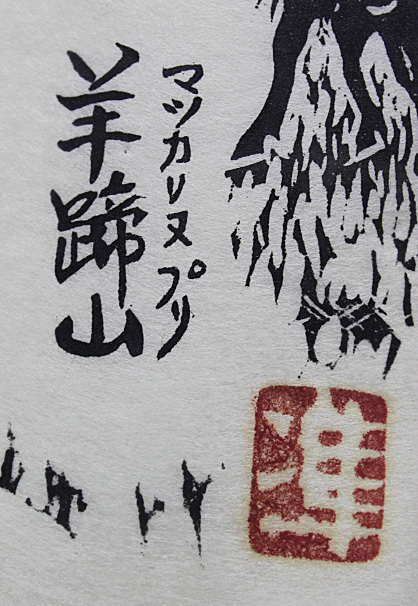 マツカリヌプリ
羊蹄山